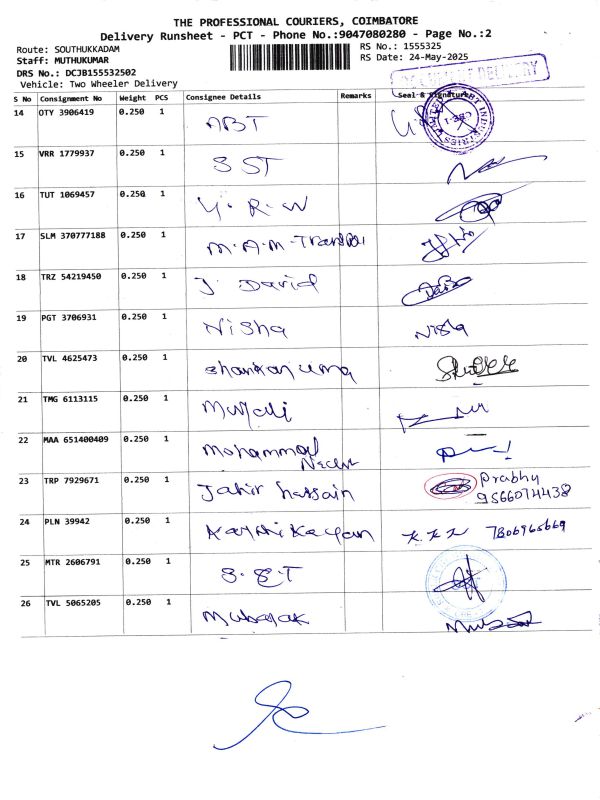 THE PROFESSIONAL COURIERS, COIMBATORE
Delivery Runsheet - PCT - Phone No.:9047080280 - Page No.:2
Route: SOUTHUKKADAM
RS No.: 1555325
Staff: MUTHUKUMAR
RS Date: 24-May-2025
DRS No.: DCJB155532502
Vehicle: Two Wheeler Delivery
S No Consignment No Weight PCS Consignee Details Remarks Seal & Signature
14 OTY 3906419 0.250 1 ABT
15 VRR 1779937 0.250 1 SST
16 TUT 1069457 0.250 1 Y.R.W
17 SLM 370777188 0.250 1 M.A.M-
18 TRZ 54219450 0.250 1 J. David
19 PGT 3706931 0.250 1 Nisha Nisha
20 TVL 4625473 0.250 1 Shankar uma
21 TMG 6113115 0.250 1
22 MAA 651400409 0.250 1 Mohammad
23 TRP 7929671 0.250 1 Jakir hassain Prabhu
9566074438
24 PLN 39942 0.250 1 Karthikeyan
25 MTR 2606791 0.250 1 S.S.T
26 TVL 5065205 0.250 1 Mubarak